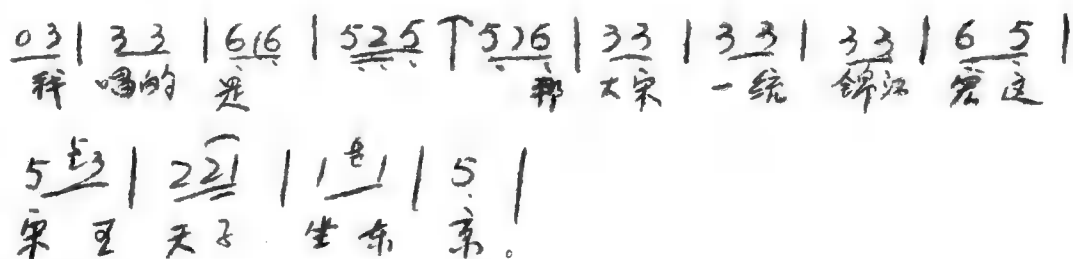 03 | 33 | 616 | 525 ↑ 516 | 33 | 33 | 33 | 65 |
我 唱的 是 那 大宋 一统 錦江
53 | 221 | 11 | 5 |
宋 王 天子 坐 东 京。